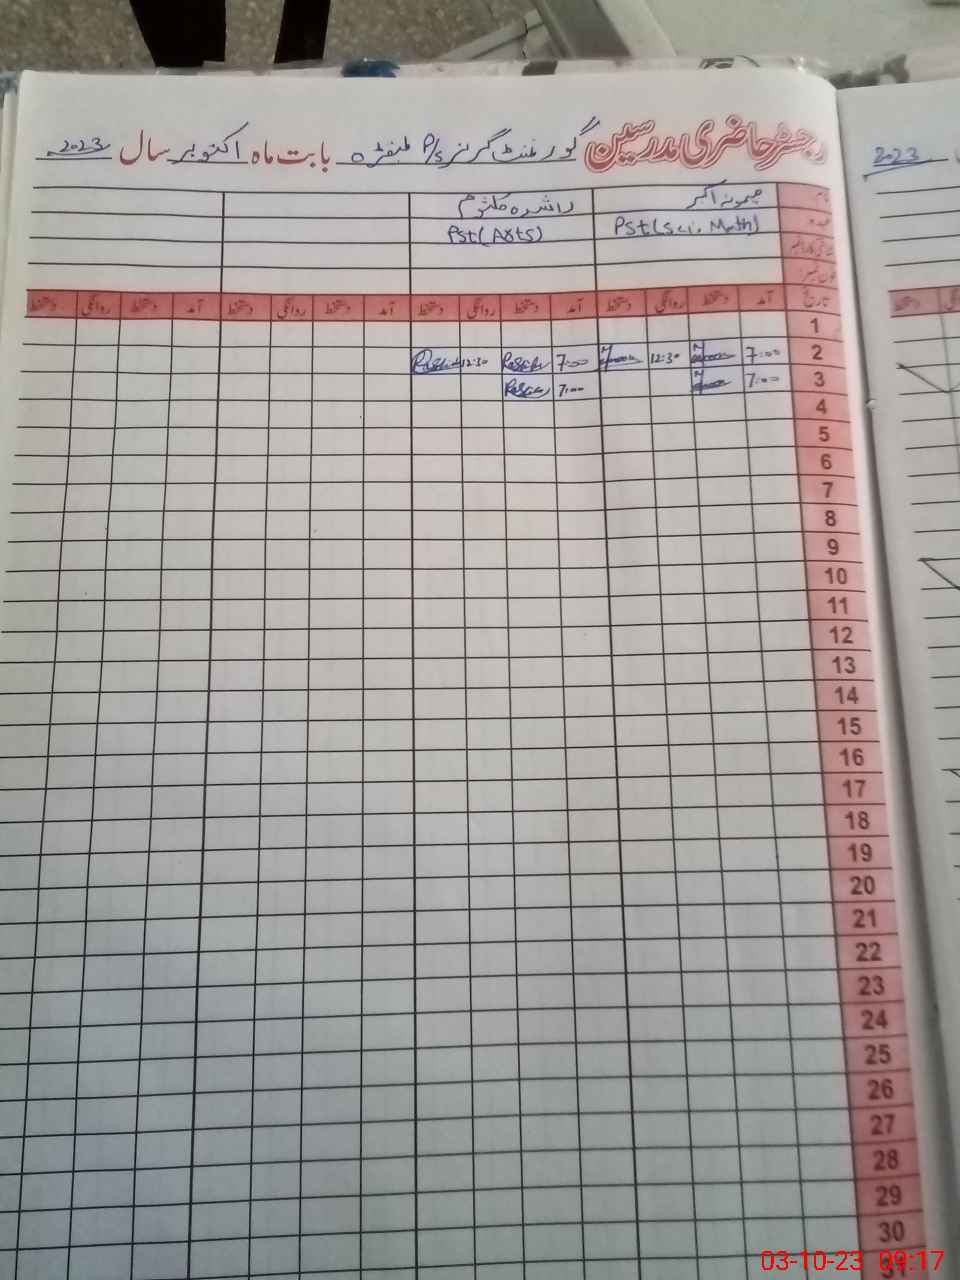 رجسٹر حاضری مدرسین گورنمنٹ گرلز P/s بابت ماہ اکتوبر سال 2023
2023
نام میمونہ اکبر راشدہ کلثوم
عہدہ Pst(Sci. Math) Pst(Arts)
شناختی کارڈ نمبر
فون نمبر
تاریخ آمد دستخط روانگی دستخط آمد دستخط روانگی دستخط آمد دستخط روانگی دستخط آمد دستخط روانگی دستخط
دستخط
1
2 7:00 12:30 7:00 12:30
3 7:00 7:00
4
5
6
7
8
9
10
11
12
13
14
15
16
17
18
19
20
21
22
23
24
25
26
27
28
29
30
31
03-10-23 09:17